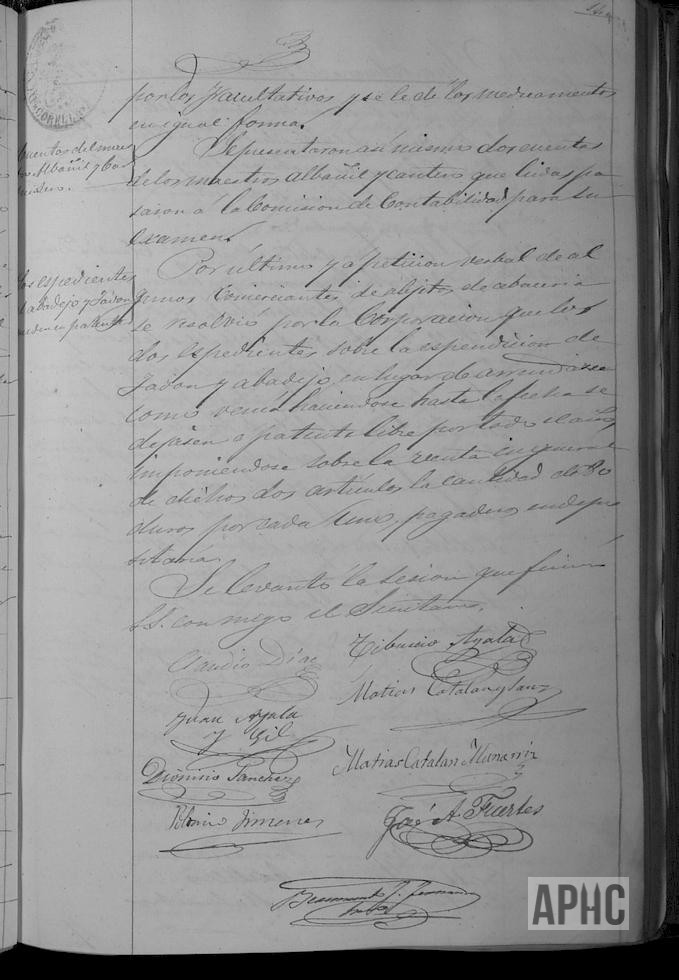 por los facultativos y se le dé los medicamentos
en igual forma.
Cuentas del maes
tro Albañil y Can
tero.
Se presentaron así mismo dos cuentas
de los maestros albañil y cantero que leidas pa
saron á la Comision de Contabilidad para su
examen.
Los espedientes
de abadejo y jabon
queden en patente
Por último y a peticion verbal de al
gunos comerciantes de objetos de abaceria
se resolvió por la Corporacion que los
dos espedientes sobre la espendicion de
Jabon y abadejo, en lugar de arrendarse
como venia haciendose hasta la fecha se
dejasen a patente libre por todo el año
imponiendose sobre la venta en general
de dichos dos artículos la cantidad de 80
duros por cada uno, pagaderos en depo
sitaria.
Se levantó la sesion que firman
S.S. con migo el Secretario.
Claudio Díaz
Tiburcio Ayala
Juan Ayala
y Gil
Matias Catalan y Sanz
Dionisio Sanchez
Matias Catalan Munarriz
Jimenez
José A. Fuertes
APHC